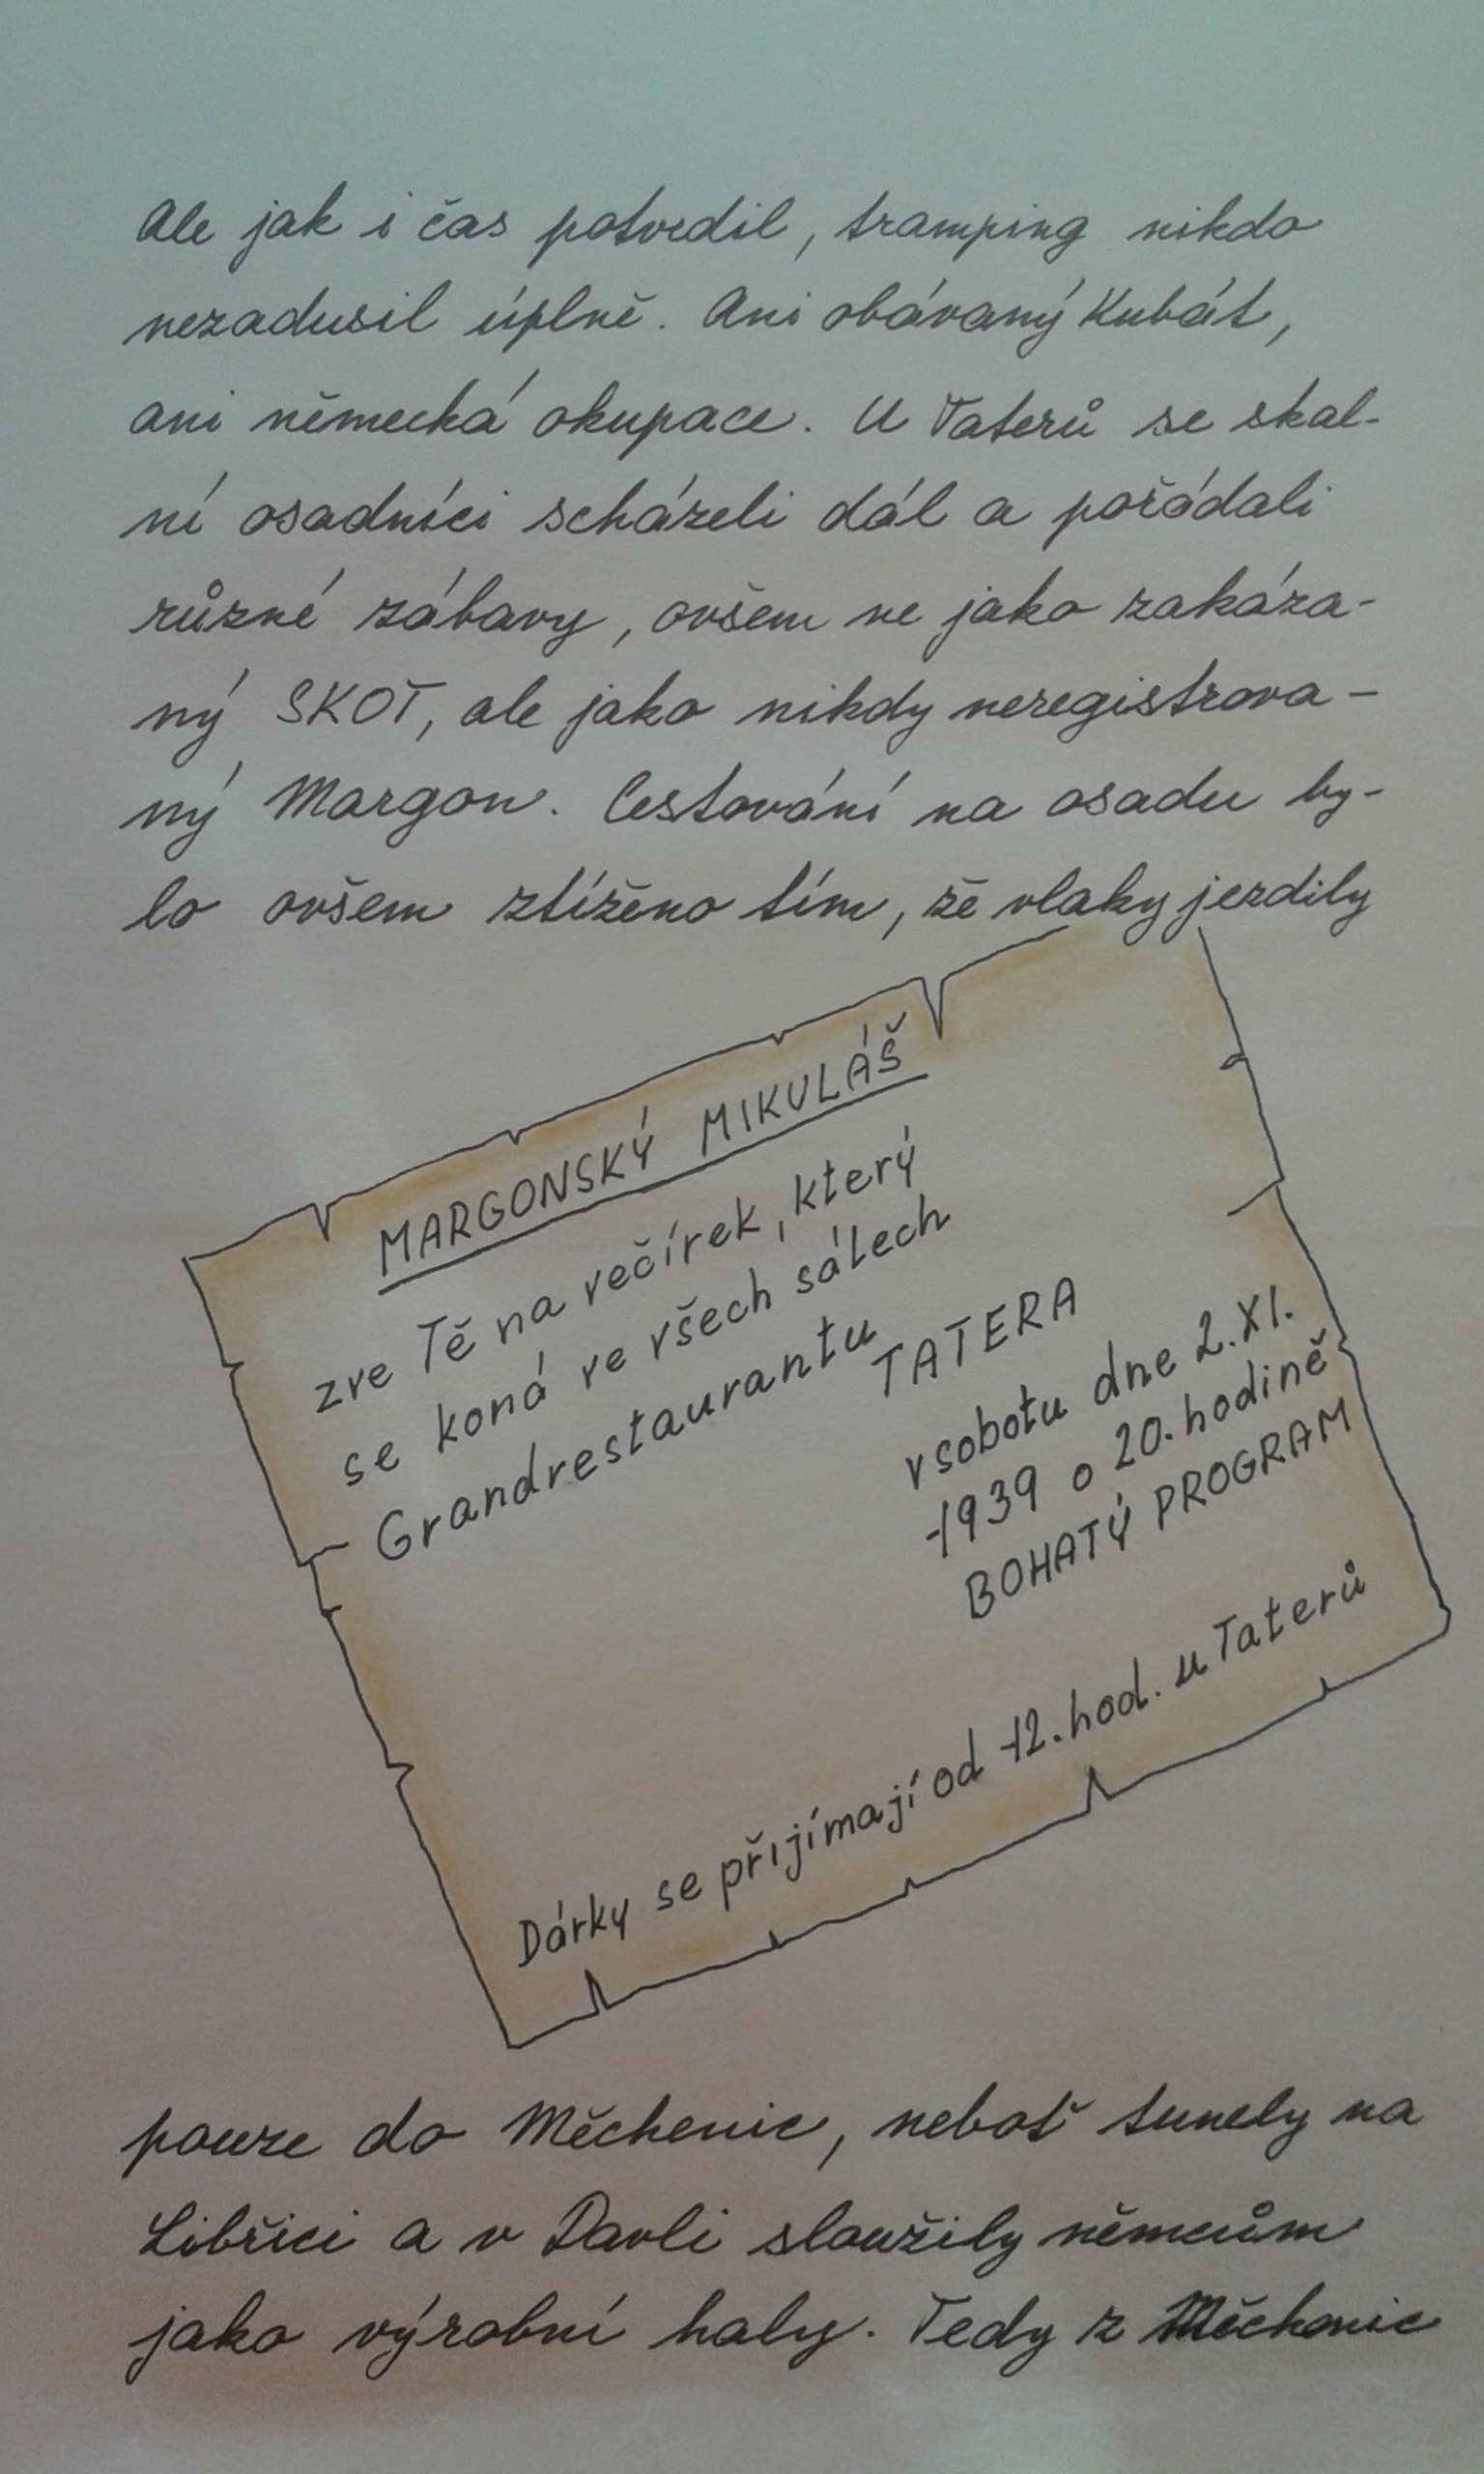 Ale jak i čas potvrdil, tramping nikdo
nezadusil úplně. Ani obávaný Kubát,
ani německá okupace. U Taterů se skal-
ní osadníci scházeli dál a pořádali
různé zábavy, ovšem ne jako zakáza-
ný SKOT, ale jako nikdy neregistrova-
ný Margon. Cestování na osadu by-
lo ovšem ztíženo tím, že vlaky jezdily
MARGONSKÝ MIKULÁŠ
zve Tě na večírek, který
se koná ve všech sálech
Grandrestaurantu
TATERA
v sobotu dne 2.XI.
1939 o 20. hodině
BOHATÝ PROGRAM
Dárky se přijímají od 12. hod. u Taterů
pouze do Měchenic, neboť tunely na
Libřici a v Davli sloužily němcům
jako výrobní haly. Tedy z Měchenic